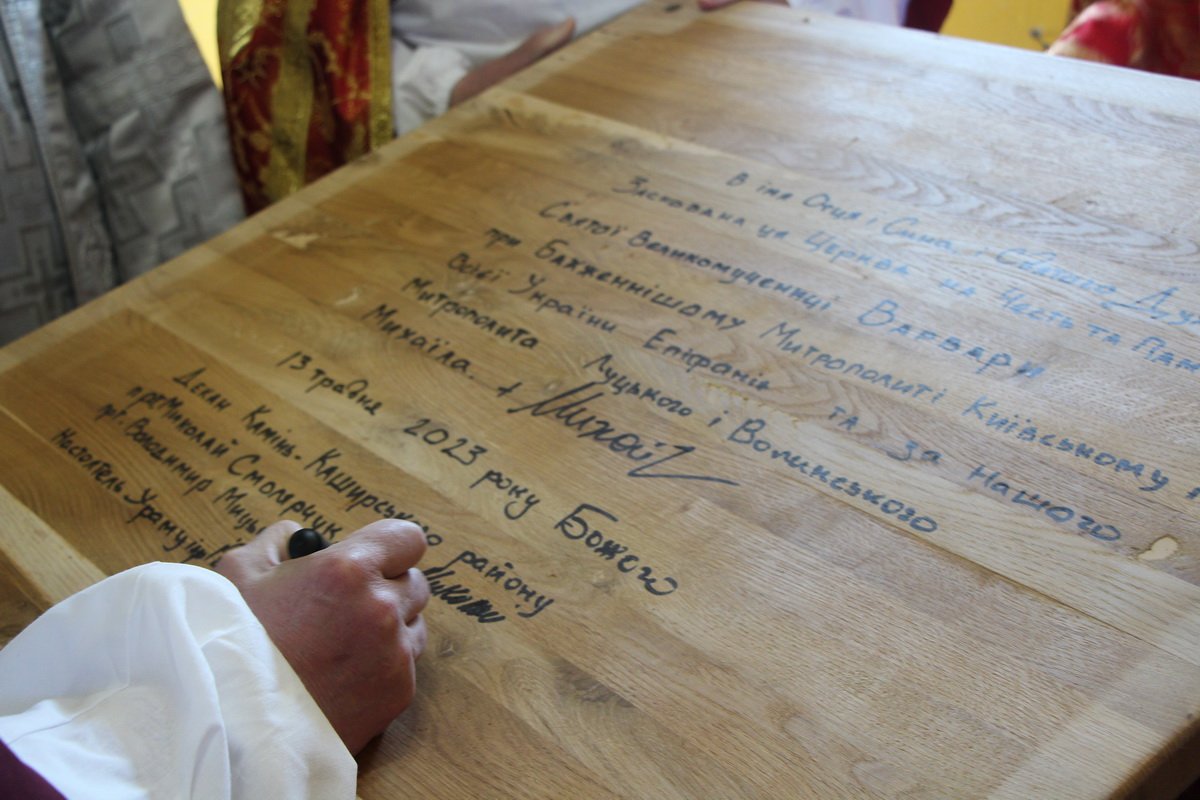 В імя Отця і Сина і Святого Ду
Заснована ця Церква на Честь та
Святої Великомучениці Варвари
при Блаженнішому Митрополиті Київському
Всієї України Епіфанії та за Нашого
Митрополита Луцького і Волинського
Михаїла. + Михаїл
13 травня 2023 року Божого
Декан Камінь-Каширського району
Миколай Смолярчук
прт. Володимир
Настоятель Храму